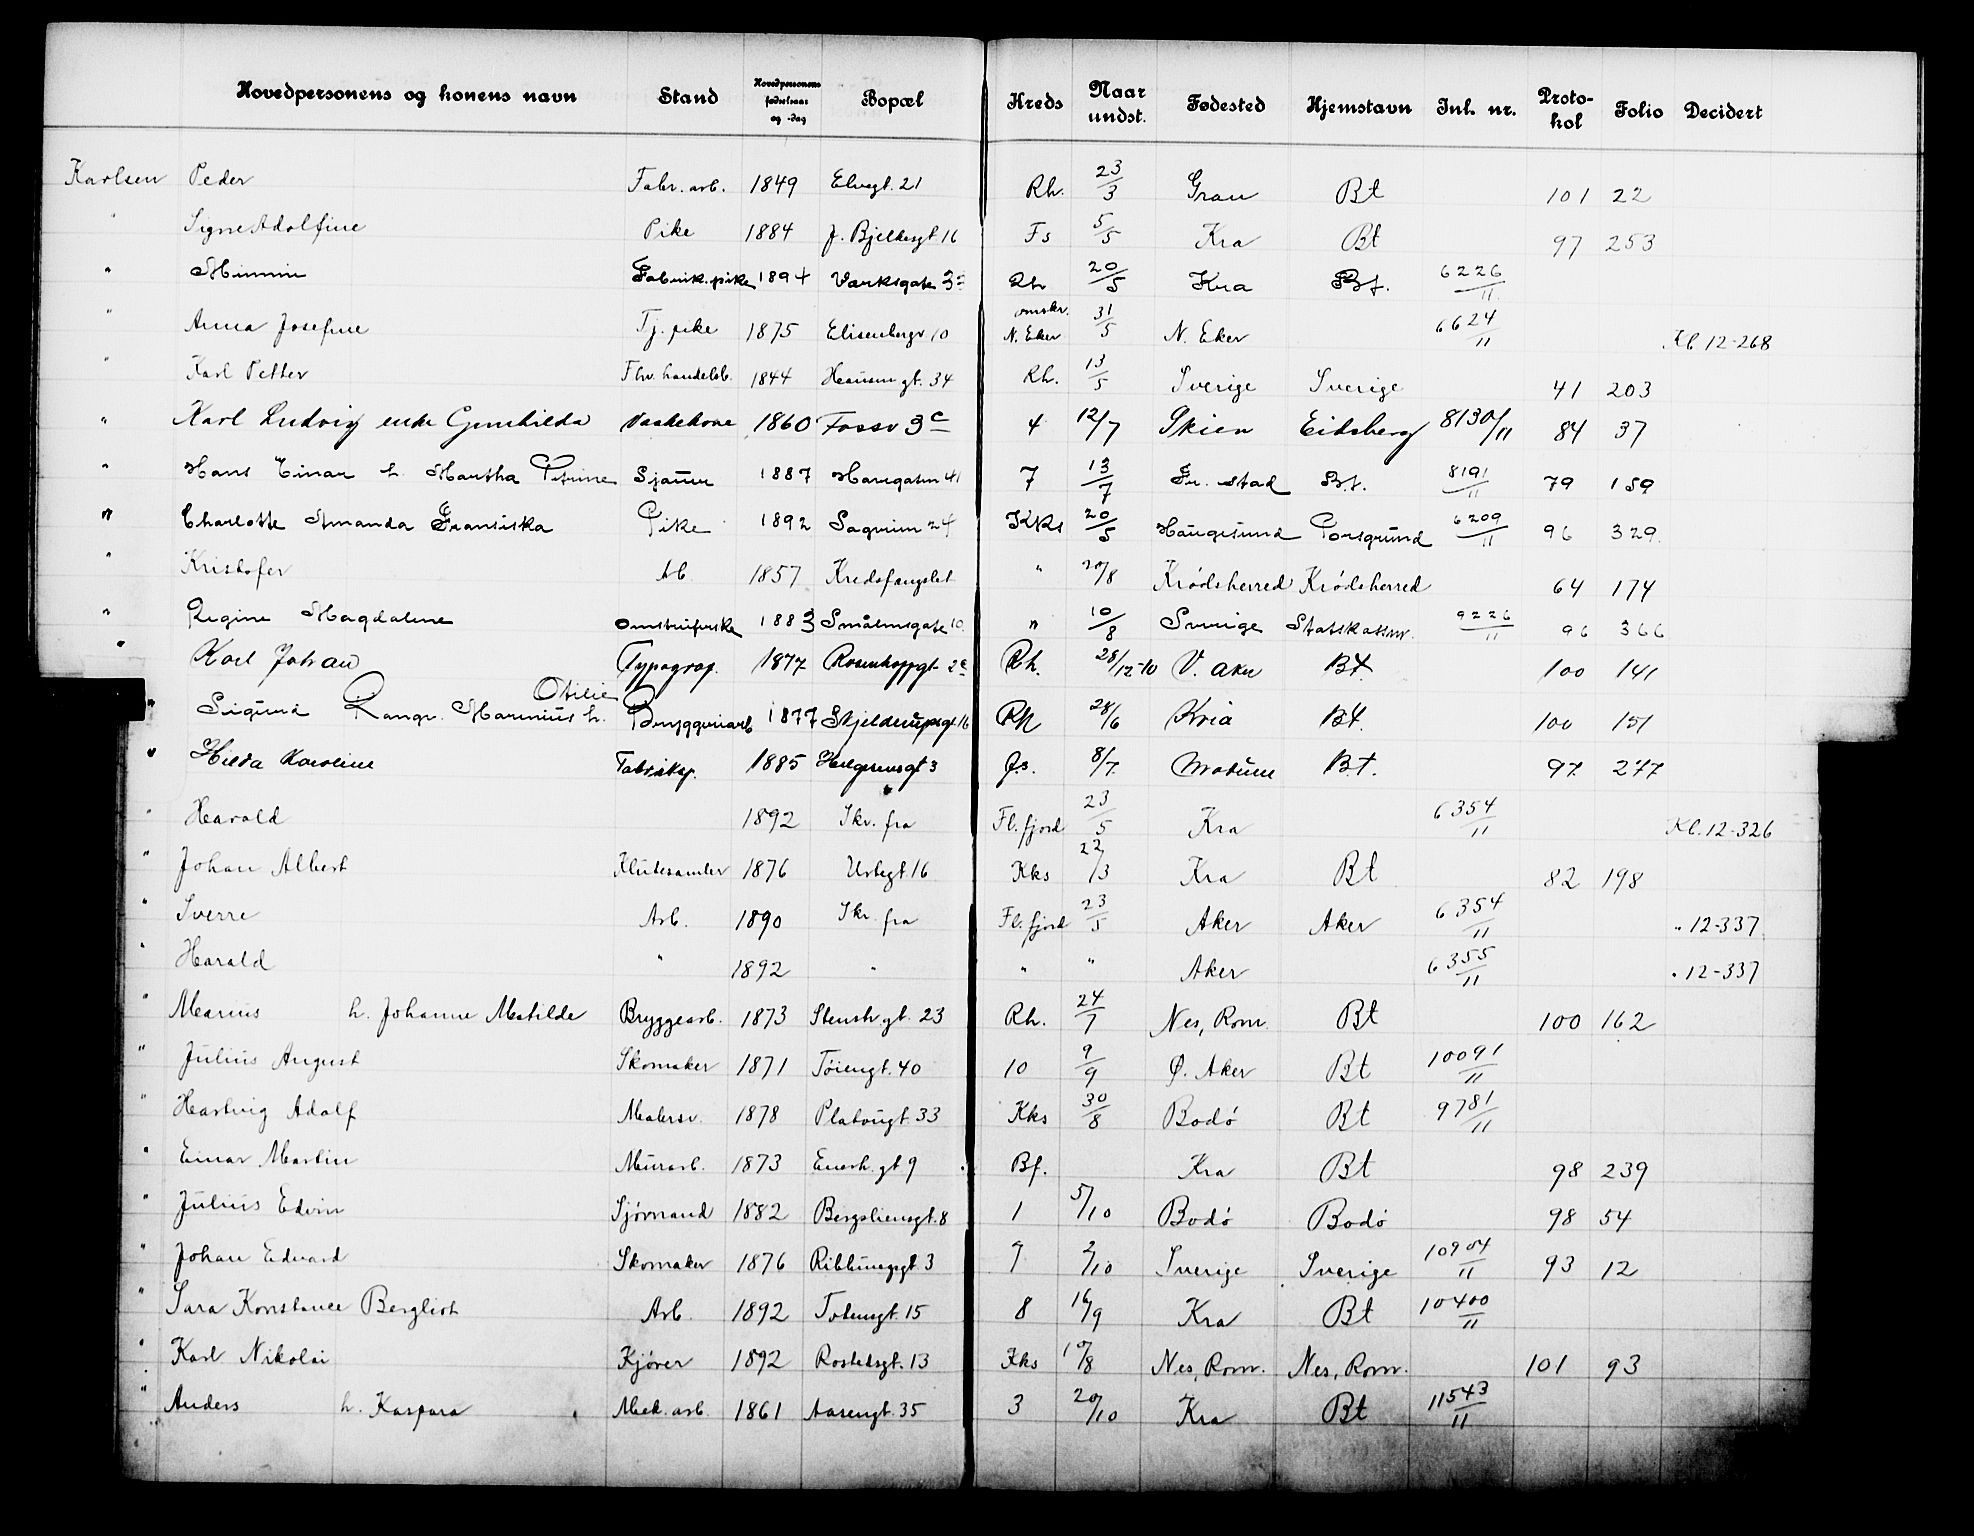 Hovedpersonens og konens navn Stand Hovedpersonens fødselsaar og -dag Bopæl Kreds Naar undst. Fødested Hjemstavn Inl. nr. Proto-kol Folio Decidert
Karlsen Peder Fabr. arb. 1849 Elvegt. 21 Rh. 23/3 Gran Bt 101 22
" Signe Adolfine Pike 1884 J. Bjelkesgt 16 Fs 5/5 Kra Bt 97 253
" Minnie Fabrik.pike 1894 Værksgate Rh 20/5 Kra Bt. 6226/11
" Anna Josefine Tj. pike 1875 Elisenbergv 10 omskr. N. Eker 31/5 N. Eker 6624/11 Kl 12-268
" Karl Petter Fhv. handelsb. 1844 gt. 34 Rh. 13/5 Sverige Sverige 41 203
" Karl Ludvig enke Gunhilda Vaskekone 1860 Fossv 3c 4 12/7 Skien Eidsberg 8130/11 84 37
" Hans Einar h. Martha Petrine Sjauer 1887 41 7 13/7 Fr. stad Bt. 8191/11 79 159
" Charlotte Amanda Fransiska Pike 1892 Sagveien 24 Kks 20/5 Haugesund Porsgrund 6209/11 96 329.
" Kristofer Ab 1857 Kredsfængslet " 20/8 Krødsherred Krødsherred 64 174
" Regine Magdalene omstreiferske 1883 Smålensgate 10. " 10/8 Sverige Statskassen. 9226/11 96 366
" Karl Johan Typograf. 1877 Rosenhoffgt 2c Rh. 28/12-10 V. Aker Bt. 100 141
" Sigurd Rangv. Marinius h. Otilie Bryggeriarb 1877 Skjelderupsgt 16 Rh 28/6 Kria Bt. 100 151
" Hilda Karoline Fabrikp. 1885 Helgesensgt 3 Fs. 8/7 Modum B.t. 97 277
" Harald 1892 Skr. fra Fl. fjord 23/5 Kra 6354/11 Kl. 12-326
" Johan Albert Klutesamler 1876 Urtegt. 16 Kks 22/3 Kra Bt 82 198
" Sverre Arb. 1890 Skr. fra Fl. fjord 23/5 Aker Aker 6354/11 " 12-337
" Harald " 1892 " " " Aker 6355/11 " 12-337
" Marius h. Johanne Matilde Bryggearb. 1873 Stensb.gt. 23 Rh. 24/7 Nes, Rom. Bt 100 162
" Julius August Skomaker 1871 Tøiengt. 40 10 9/9 Ø. Aker Bt 10091/11
" Hartvig Adolf Malersv. 1878 Platougt. 33 Kks 30/8 Bodø Bt 9781/11
" Einar Martin Murarb. 1873 Enerh. gt 9 Bf. Kra Bt 98 239
" Julius Edvin Sjømand 1882 Bergsliensgt. 8 1 5/10 Bodø Bodø 98 54
" Johan Edvard Skomaker 1876 Ribbungsgt 3 7 2/10 Sverige Sverige 10904/11 93 12
" Sara Konstance Bergliot Arb. 1892 Totensgt. 15 8 16/9 Kra Bt 10400/11
" Karl Nikolai Kjører 1892 Rostedsgt. 13 Kks 10/8 Nes, Rom. Nes, Rom. 101 93
" Anders h. Kaspara Mek. arb. 1861 Aasengt. 35 3 20/10 Kra Bt 11543/11